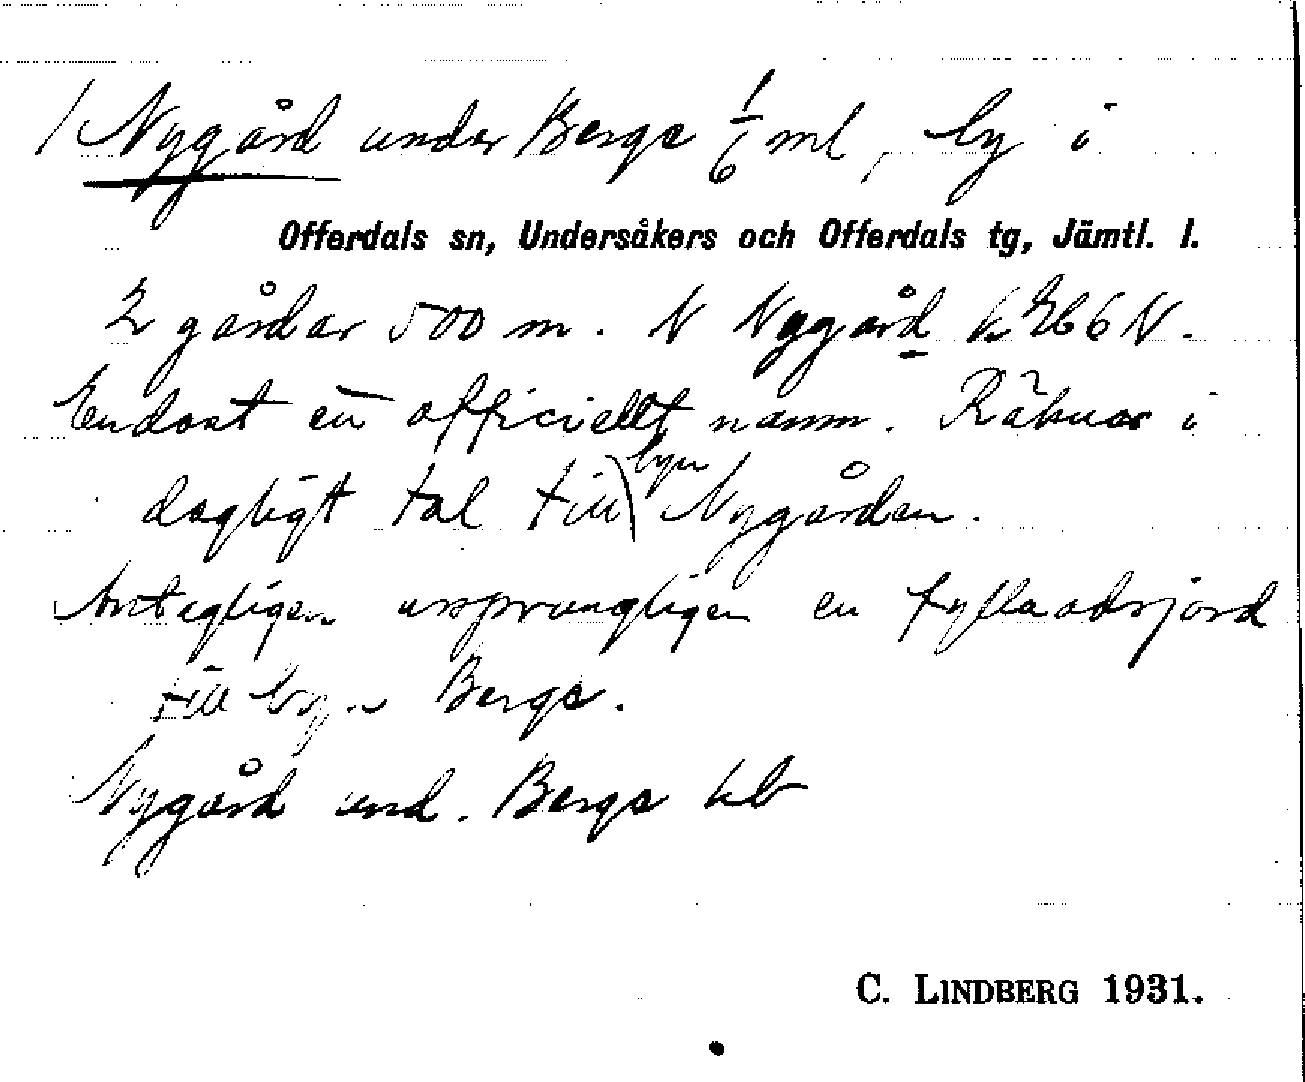 / Nygård under Berge 1/6 ml, by i
Offerdals sn, Undersåkers och Offerdals tg, Jämtl. l.
2 gårdar 500 m. N Nygård k 266 N.
Endast ett officiellt namn. Räknas i
dagligt tal till byn Nygården.
Antagligen ursprungligen en fyllnadsjord
till byn Berge.
Nygård und. Berge kb
C. LINDBERG 1931.